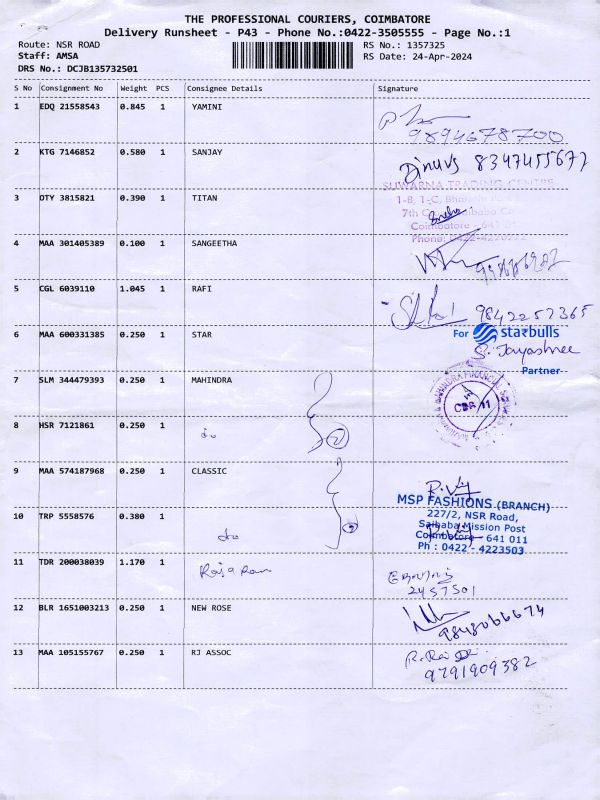 THE PROFESSIONAL COURIERS, COIMBATORE
Delivery Runsheet - P43 - Phone No.:0422-3505555 - Page No.:1
Route: NSR ROAD
RS No.: 1357325
Staff: AMSA
RS Date: 24-Apr-2024
DRS No.: DCJB135732501
S No Consignment No Weight PCS Consignee Details Signature
1 EDQ 21558543 0.845 1 YAMINI
9894678700
2 KTG 7146852 0.580 1 SANJAY
8347455677
3 OTY 3815821 0.390 1 TITAN
SUWARNA TRADING CENTRE
1-B, 1-C,
7th
Coimbatore - 641
Phone: 0422-4220222
4 MAA 301405389 0.100 1 SANGEETHA
5 CGL 6039110 1.045 1 RAFI
9842257365
6 MAA 600331385 0.250 1 STAR
For starbulls
S. Jayashree
Partner
7 SLM 344479393 0.250 1 MAHINDRA
CBR 11
8 HSR 7121861 0.250 1
do
2
9 MAA 574187968 0.250 1 CLASSIC
MSP FASHIONS (BRANCH)
227/2, NSR Road,
Saibaba Mission Post
Coimbatore - 641 011
Ph : 0422 - 4223503
10 TRP 5558576 0.380 1
do
2
11 TDR 200038039 1.170 1 Raja Ram
2457501
12 BLR 1651003213 0.250 1 NEW ROSE
9848066674
13 MAA 105155767 0.250 1 RJ ASSOC
9791909382